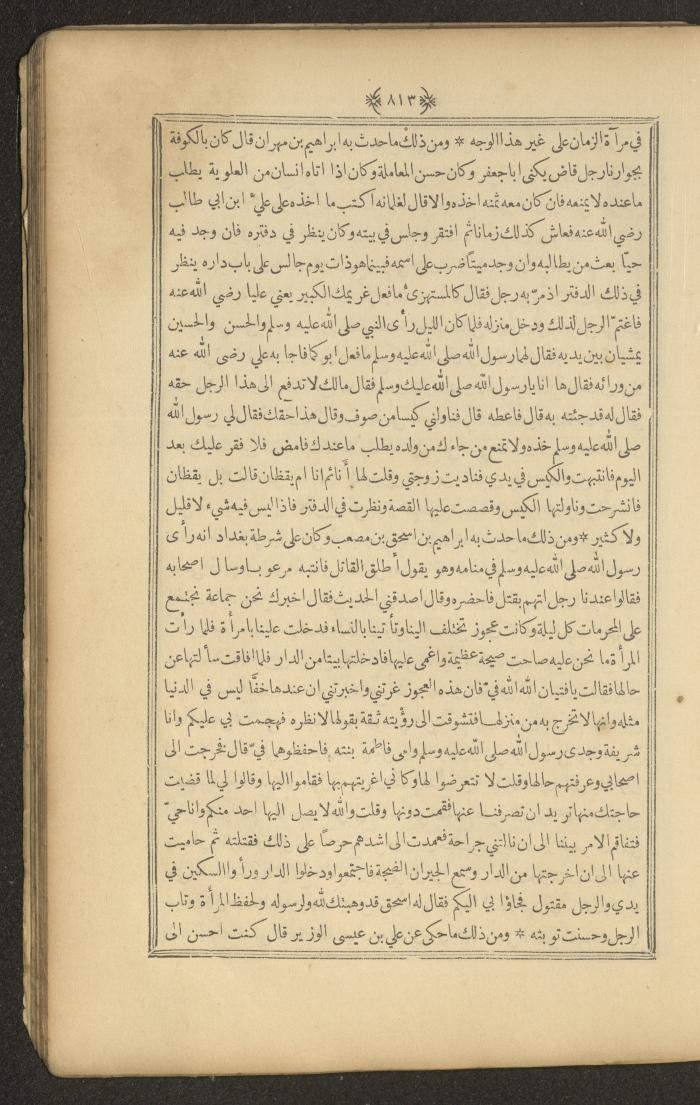 ﴿٨١٣﴾
في مرآة الزمان على غير هذا الوجه * ومن ذلك ما حدث به ابراهيم بن مهران قال كان بالكوفة
بجوارنا رجل قاض يكنى ابا جعفر وكان حسن المعاملة وكان اذا اتاه انسان من العلوية يطلب
ما عنده لا يمنعه فان كان معه ثمنه اخذه والا قال لغلمانه اكتب ما اخذه على علي ابن ابي طالب
رضي الله عنه فعاش كذلك زمانا ثم افتقر وجلس في بيته وكان ينظر في دفتره فان وجد فيه
حيّا بعث من يطالبه وان وجد ميتًا ضرب على اسمه فبينما هو ذات يوم جالس على باب داره ينظر
في ذلك الدفتر اذ مرّ به رجل فقال كالمستهزئ ما فعل غريمك الكبير يعني عليا رضي الله عنه
فاغتمّ الرجل لذلك ودخل منزله فلما كان الليل رأى النبي صلى الله عليه وسلم والحسن والحسين
يمشيان بين يديه فقال لهما رسول الله صلى الله عليه وسلم ما فعل ابوكما فاجابه علي رضى الله عنه
من ورائه فقال ها انا يا رسول الله صلى الله عليك وسلم فقال مالك لا تدفع الى هذا الرجل حقه
فقال له قد جئته به قال فاعطه قال فناولني كيسا من صوف وقال هذا حقك فقال لي رسول الله
صلى الله عليه وسلم خذه ولا تمنع من جاءك من ولده يطلب ما عندك فامض فلا فقر عليك بعد
اليوم فانتبهت والكيس في يدي فناديت زوجتي وقلت لها أنائم انا ام يقظان قالت بل يقظان
فانشرحت وناولتها الكيس وقصصت عليها القصة ونظرت في الدفتر فاذا ليس فيه شيء لا قليل
ولا كثير * ومن ذلك ما حدث به ابراهيم بن اسحق بن مصعب وكان على شرطة بغداد انه رأى
رسول الله صلى الله عليه وسلم في منامه وهو يقول أطلق القاتل فانتبه مرعوبا وسال اصحابه
فقالوا عندنا رجل اتهم بقتل فاحضره وقال اصدقني الحديث فقال اخبرك نحن جماعة نجتمع
على المحرمات كل ليلة وكانت عجوز تختلف الينا وتأتينا بالنساء فدخلت علينا بامرأة فلما رأت
المرأة ما نحن عليه صاحت صيحة عظيمة واغمى عليها فادخلتها بيتا من الدار فلما افاقت سألتها عن
حالها فقالت يا فتيان الله الله فيّ فان هذه العجوز غرتني واخبرتني ان عندها خفًّا ليس في الدنيا
مثله وانها لا تخرج به من منزلها فتشوقت الى رؤيته ثقة بقولها لانظره فهجمت بي عليكم وانا
شريفة وجدى رسول الله صلى الله عليه وسلم وامى فاطمة بنته فاحفظوهما فيّ قال فخرجت الى
اصحابي وعرفتهم حالها وقلت لا تتعرضوا لها وكأني اغريتهم بها فقاموا اليها وقالوا لي لما قضيت
حاجتك منها تريد ان تصرفنا عنها فقمت دونها وقلت والله لا يصل اليها احد منكم وانا حيّ
فتفاقم الامر بيننا الى ان نالتني جراحة فعمدت الى اشدهم حرصًا على ذلك فقتلته ثم حاميت
عنها الى ان اخرجتها من الدار وسمع الجيران الضجة فاجتمعوا ودخلوا الدار ورأوا السكين في
يدي والرجل مقتول فجاؤا بي اليكم فقال له اسحق قد وهبتك لله ولرسوله ولحفظ المرأة وتاب
الرجل وحسنت توبته * ومن ذلك ما حكى عن علي بن عيسى الوزير قال كنت احسن الى